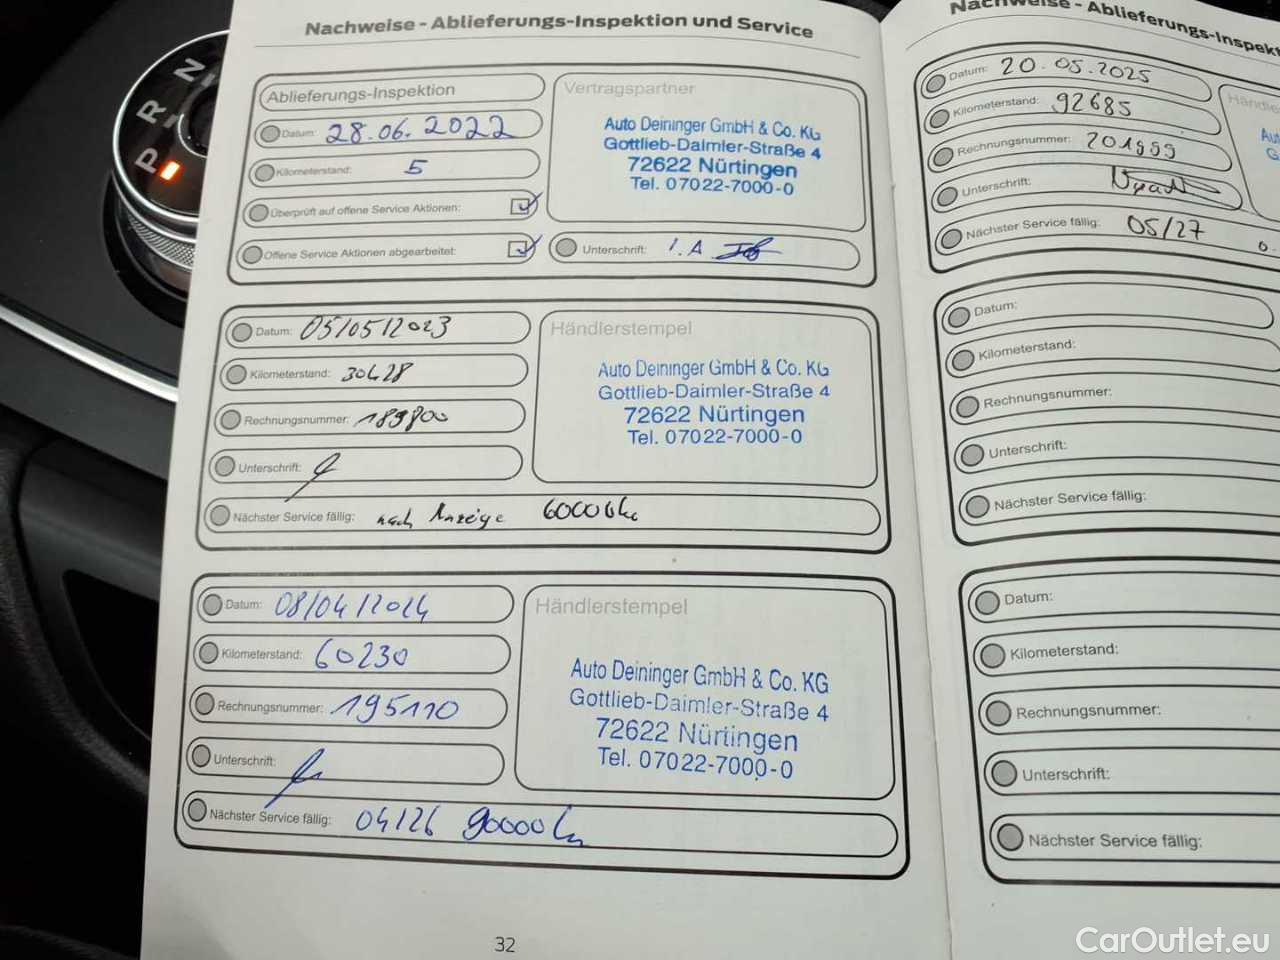 Nachweise - Ablieferungs-Inspektion und Service
Ablieferungs-Inspektion
Datum: 28.06.2022
Kilometerstand: 5
Überprüft auf offene Service Aktionen:
Offene Service Aktionen abgearbeitet:
Vertragspartner
Auto Deininger GmbH & Co. KG
Gottlieb-Daimler-Straße 4
72622 Nürtingen
Tel. 07022-7000-0
Unterschrift: I.A
Datum: 05/05/2023
Kilometerstand: 30428
Rechnungsnummer: 189800
Unterschrift:
Nächster Service fällig: nach Anzeige 60000km
Händlerstempel
Auto Deininger GmbH & Co. KG
Gottlieb-Daimler-Straße 4
72622 Nürtingen
Tel. 07022-7000-0
Datum: 08/04/2024
Kilometerstand: 60230
Rechnungsnummer: 195110
Unterschrift:
Nächster Service fällig: 04/26 90000km
Händlerstempel
Auto Deininger GmbH & Co. KG
Gottlieb-Daimler-Straße 4
72622 Nürtingen
Tel. 07022-7000-0
32
Nachweise - Ablieferungs-Inspekt
Datum: 20.05.2025
Kilometerstand: 92685
Rechnungsnummer: 201999
Unterschrift:
Nächster Service fällig: 05/27
Datum:
Kilometerstand:
Rechnungsnummer:
Unterschrift:
Nächster Service fällig:
Datum:
Kilometerstand:
Rechnungsnummer:
Unterschrift:
Nächster Service fällig:
P R N
CarOutlet.eu